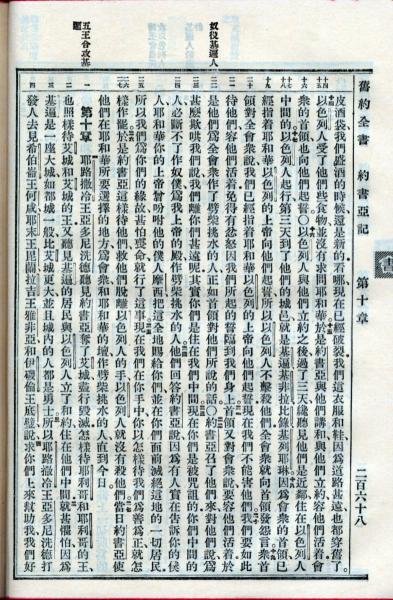 舊約全書 約書亞記 第十章 二百六十八
皮酒袋我們盛酒的時候還是新的看哪現在已經破裂我們這衣服和鞋因爲道路甚遠也都穿舊了。
十四 以色列人受了他們些食物並沒有求問耶和華於是約書亞與他們講和與他們立約容他們活着會
衆的首領也向他們起誓〇以色列人與他們立約之後過了三天纔聽見他們是近鄰住在以色列人
中間的以色列人起行第三天到了他們的城邑就是基遍基非拉比錄基列耶琳因爲會衆的首領已
經指着耶和華以色列的上帝向他們起誓所以以色列人不擊殺他們全會衆就向首領發怨言衆首
領對全會衆說我們已經指着耶和華以色列的上帝向他們起誓現在我們不能害他們我們要如此
待他們容他們活着免得有忿怒因我們所起的誓臨到我們身上首領又對會衆說要容他們活着於
奴役基遍人
是他們爲全會衆作了劈柴挑水的人正如首領對他們所說的話〇約書亞召了他們來對他們說爲
甚麼欺哄我們說我們離你們甚遠呢其實你們是住在我們中間現在你們是被咒詛的你們中間的
人必斷不了作奴僕爲我上帝的殿作劈柴挑水的人他們回答約書亞說因爲有人實在告訴你的僕
人耶和華你的上帝曾吩咐他的僕人摩西把這全地賜給你們並在你們面前滅絕這地的一切居民
所以我們爲你們的緣故甚怕喪命就行了這事現在我們在你手中你以怎樣待我們爲善爲正就怎
樣作罷於是約書亞這樣待他們救他們脫離以色列人的手以色列人就沒有殺他們當日約書亞使
他們在耶和華所要選擇的地方爲會衆和耶和華的壇作劈柴挑水的人直到今日
五王合攻基遍
一 第十章 耶路撒冷王亞多尼洗德聽見約書亞奪了艾城盡行毀滅怎樣待耶利哥和耶利哥的王
二 也照樣待艾城和艾城的王又聽見基遍的居民與以色列人立了和約住在他們中間就甚懼怕因爲
三 基遍是一座大城如都城一般比艾城更大並且城內的人都是勇士所以耶路撒冷王亞多尼洗德打
四 發人去見希伯崙王何咸耶末王毘蘭拉吉王雅非亞和伊磯倫王底璧說求你們上來幫助我我們好